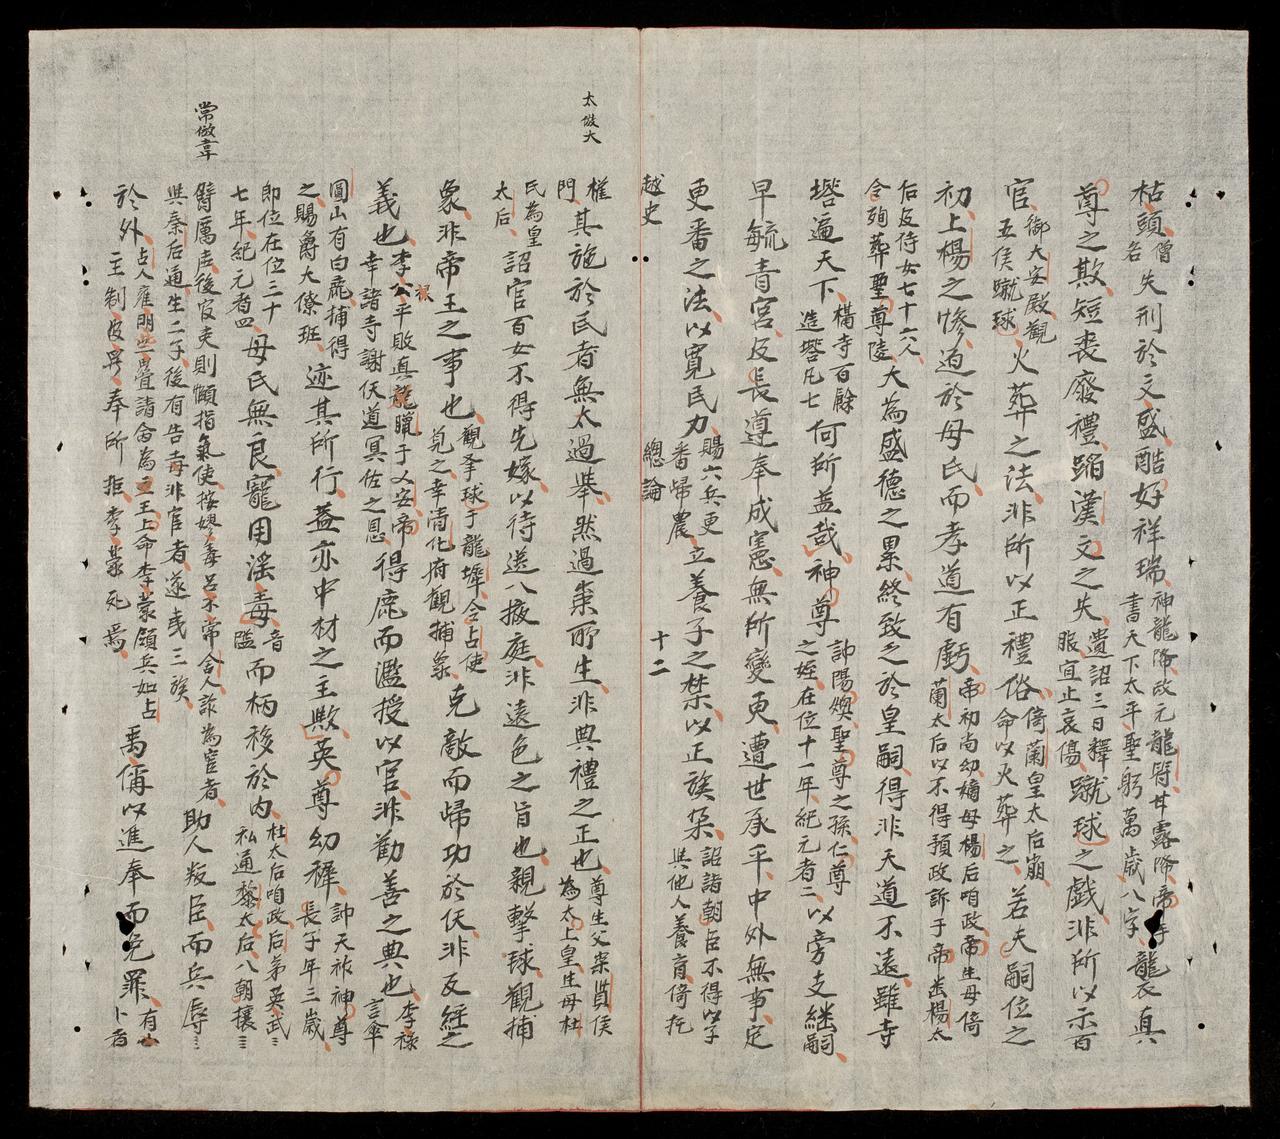 太做大
常做韋
枯頭僧名失刑於文盛酷好祥瑞神龍降改元龍甘露降帝手書天下太平聖躬萬歲八字襲真
尊之欺短喪廢禮蹈漢文之失遺詔三日釋服宜止哀傷蹴球之戲非所以示百
官御大安殿觀五侯蹴球火葬之法非所以正禮俗倚蘭皇太后崩命以火葬之若夫嗣位之
初上楊之慘過於母氏而孝道有虧帝初尚幼嫡母楊后咱政帝生母倚蘭太后以不得預政訴于帝幽楊太
后及侍女七十六人令殉葬聖尊陵大為盛德之累終致乏於皇嗣得非天道不遠雖寺
塔遍天下構寺百餘造塔凡七何所益哉神尊諱陽煥聖尊之孫仁尊之姪在位十一年紀元者二以旁支継嗣
早毓青宮及長遵奉成憲無所變更遭世承平中外無事定
更番之法以寬民力賜六兵更番歸農立養子之禁以正族朶詔諸朝臣不得以子與他人養育倚庇
越史 總論 十二
權門其施於民者無太過舉然過棄所生非典禮之正也尊生父崇賢侯為太上皇生母杜
氏為皇太后詔官百女不得先嫁以待選八掖庭非遠色之旨也親擊球觀捕
象非帝王之事也觀球于龍墀令占使見之幸清化府觀捕象克敵而歸功於仸非反經之
義也李公平敗真龍臘于乂安帝幸諸寺謝仸道冥佐之恩得鹿而濫授以官非勸善之典也李祿言傘
圓山有白鹿捕得之賜爵大僚班迹其所行蓋亦中材之主歟英尊幼穉諱天祚神尊長子年三歲
即位在位三十七年紀元者四母氏無良寵用滛毒音而柄移於内杜太后咱政后弟英武私通黎太后八朝攘
臂厲声後宦吏則頤指氣使按嫪毒呂不常舍人詐為宦者與秦后通生二子後有告毒非宦者遂夷三族助人叛臣而兵辱
於外占人雍明些疊諸畲為主王上命李蒙領兵如占主制皮羿奉所拒李蒙死焉禹偁以進奉而免罪有卜者